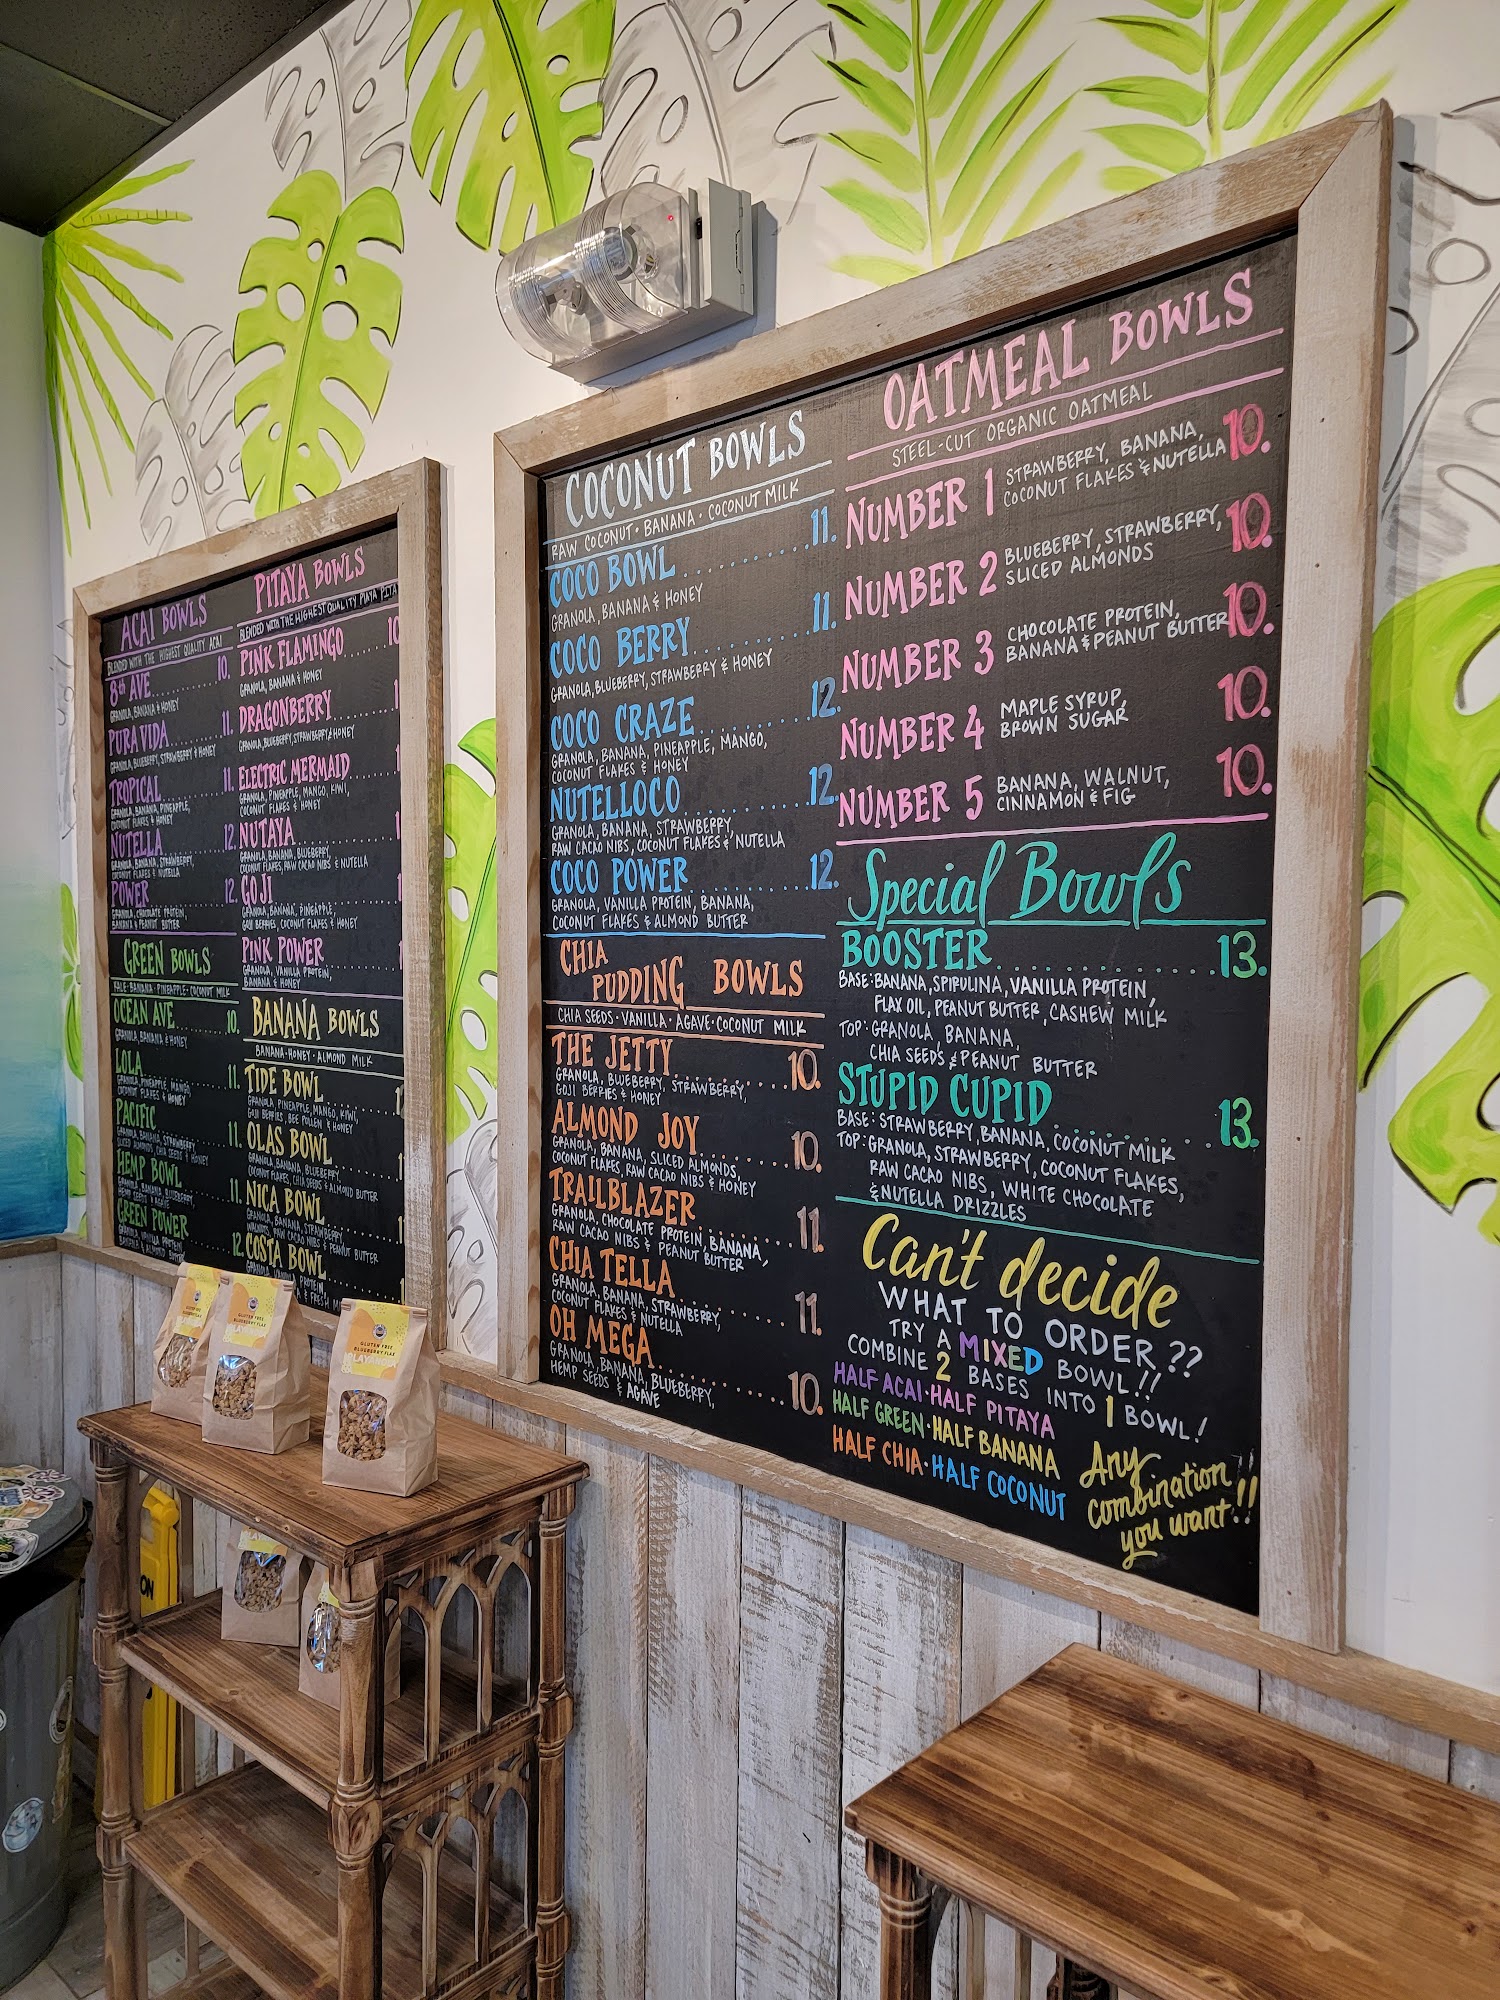 ACAI BOWLS
BLENDED WITH THE HIGHEST QUALITY ACAI
8th AVE 10.
GRANOLA, BANANA & HONEY
PURA VIDA 11.
GRANOLA, BLUEBERRY, STRAWBERRY & HONEY
TROPICAL 11.
GRANOLA, BANANA, PINEAPPLE,
COCONUT FLAKES & HONEY
NUTELLA 12.
GRANOLA, BANANA, STRAWBERRY,
COCONUT FLAKES & NUTELLA
POWER 12.
GRANOLA, CHOCOLATE PROTEIN,
BANANA & PEANUT BUTTER
GREEN BOWLS
KALE · BANANA · PINEAPPLE · COCONUT MILK
OCEAN AVE 10.
GRANOLA, BANANA & HONEY
LOLA 11.
GRANOLA, PINEAPPLE, MANGO,
COCONUT FLAKES & HONEY
PACIFIC 11.
GRANOLA, BANANA, STRAWBERRY,
SLICED ALMONDS, CHIA SEEDS & HONEY
HEMP BOWL 11.
GRANOLA, BANANA, BLUEBERRY,
HEMP SEEDS & AGAVE
GREEN POWER 12.
GRANOLA, VANILLA PROTEIN
BANANA & ALMOND BUTTER
PITAYA BOWLS
BLENDED WITH THE HIGHEST QUALITY PLAYA PITA
PINK FLAMINGO 10
GRANOLA, BANANA & HONEY
DRAGONBERRY 1
GRANOLA, BLUEBERRY, STRAWBERRY & HONEY
ELECTRIC MERMAID 1
GRANOLA, PINEAPPLE, MANGO, KIWI,
COCONUT FLAKES & HONEY
NUTAYA 1
GRANOLA, BANANA, BLUEBERRY,
COCONUT FLAKES, RAW CACAO NIBS & NUTELLA
GOJI 1
GRANOLA, BANANA, PINEAPPLE,
GOJI BERRIES, COCONUT FLAKES & HONEY
PINK POWER 1
GRANOLA, VANILLA PROTEIN,
BANANA & HONEY
BANANA BOWLS
BANANA · HONEY · ALMOND MILK
TIDE BOWL 1
GRANOLA, PINEAPPLE, MANGO, KIWI,
GOJI BERRIES, BEE POLLEN & HONEY
OLAS BOWL 1
GRANOLA, BANANA, BLUEBERRY,
COCONUT FLAKES, CHIA SEEDS & ALMOND BUTTER
NICA BOWL 1
GRANOLA, BANANA, STRAWBERRY,
WALNUTS, RAW CACAO NIBS & PEANUT BUTTER
COSTA BOWL 1
GRANOLA, VANILLA PROTEIN,
& FRESH M
COCONUT BOWLS
RAW COCONUT · BANANA · COCONUT MILK
COCO BOWL 11.
GRANOLA, BANANA & HONEY
COCO BERRY 11.
GRANOLA, BLUEBERRY, STRAWBERRY & HONEY
COCO CRAZE 12.
GRANOLA, BANANA, PINEAPPLE, MANGO,
COCONUT FLAKES & HONEY
NUTELLOCO 12.
GRANOLA, BANANA, STRAWBERRY,
RAW CACAO NIBS, COCONUT FLAKES & NUTELLA
COCO POWER 12.
GRANOLA, VANILLA PROTEIN, BANANA,
COCONUT FLAKES & ALMOND BUTTER
CHIA
PUDDING BOWLS
CHIA SEEDS · VANILLA · AGAVE · COCONUT MILK
THE JETTY 10.
GRANOLA, BLUEBERRY, STRAWBERRY,
GOJI BERRIES & HONEY
ALMOND JOY 10.
GRANOLA, BANANA, SLICED ALMONDS,
COCONUT FLAKES, RAW CACAO NIBS & HONEY
TRAILBLAZER 11.
GRANOLA, CHOCOLATE PROTEIN, BANANA,
RAW CACAO NIBS & PEANUT BUTTER
CHIA TELLA 11.
GRANOLA, BANANA, STRAWBERRY,
COCONUT FLAKES & NUTELLA
OH MEGA 10.
GRANOLA, BANANA, BLUEBERRY,
HEMP SEEDS & AGAVE
OATMEAL BOWLS
STEEL-CUT ORGANIC OATMEAL
NUMBER 1 STRAWBERRY, BANANA, 10.
COCONUT FLAKES & NUTELLA
NUMBER 2 BLUEBERRY, STRAWBERRY, 10.
SLICED ALMONDS
NUMBER 3 CHOCOLATE PROTEIN, 10.
BANANA & PEANUT BUTTER
NUMBER 4 MAPLE SYRUP, 10.
BROWN SUGAR
NUMBER 5 BANANA, WALNUT, 10.
CINNAMON & FIG
Special Bowls
BOOSTER 13.
BASE: BANANA, SPIRULINA, VANILLA PROTEIN,
FLAX OIL, PEANUT BUTTER, CASHEW MILK
TOP: GRANOLA, BANANA,
CHIA SEEDS & PEANUT BUTTER
STUPID CUPID 13.
BASE: STRAWBERRY, BANANA, COCONUT MILK
TOP: GRANOLA, STRAWBERRY, COCONUT FLAKES,
RAW CACAO NIBS, WHITE CHOCOLATE
& NUTELLA DRIZZLES
Can't decide
WHAT TO ORDER??
TRY A MIXED BOWL!!
COMBINE 2 BASES INTO 1 BOWL!
HALF ACAI · HALF PITAYA
HALF GREEN · HALF BANANA
HALF CHIA · HALF COCONUT
Any
combination
you want!!
GLUTEN FREE
BLUEBERRY FLAX
GLUTEN FREE
BLUEBERRY FLAX
PLAYANOLA
ON